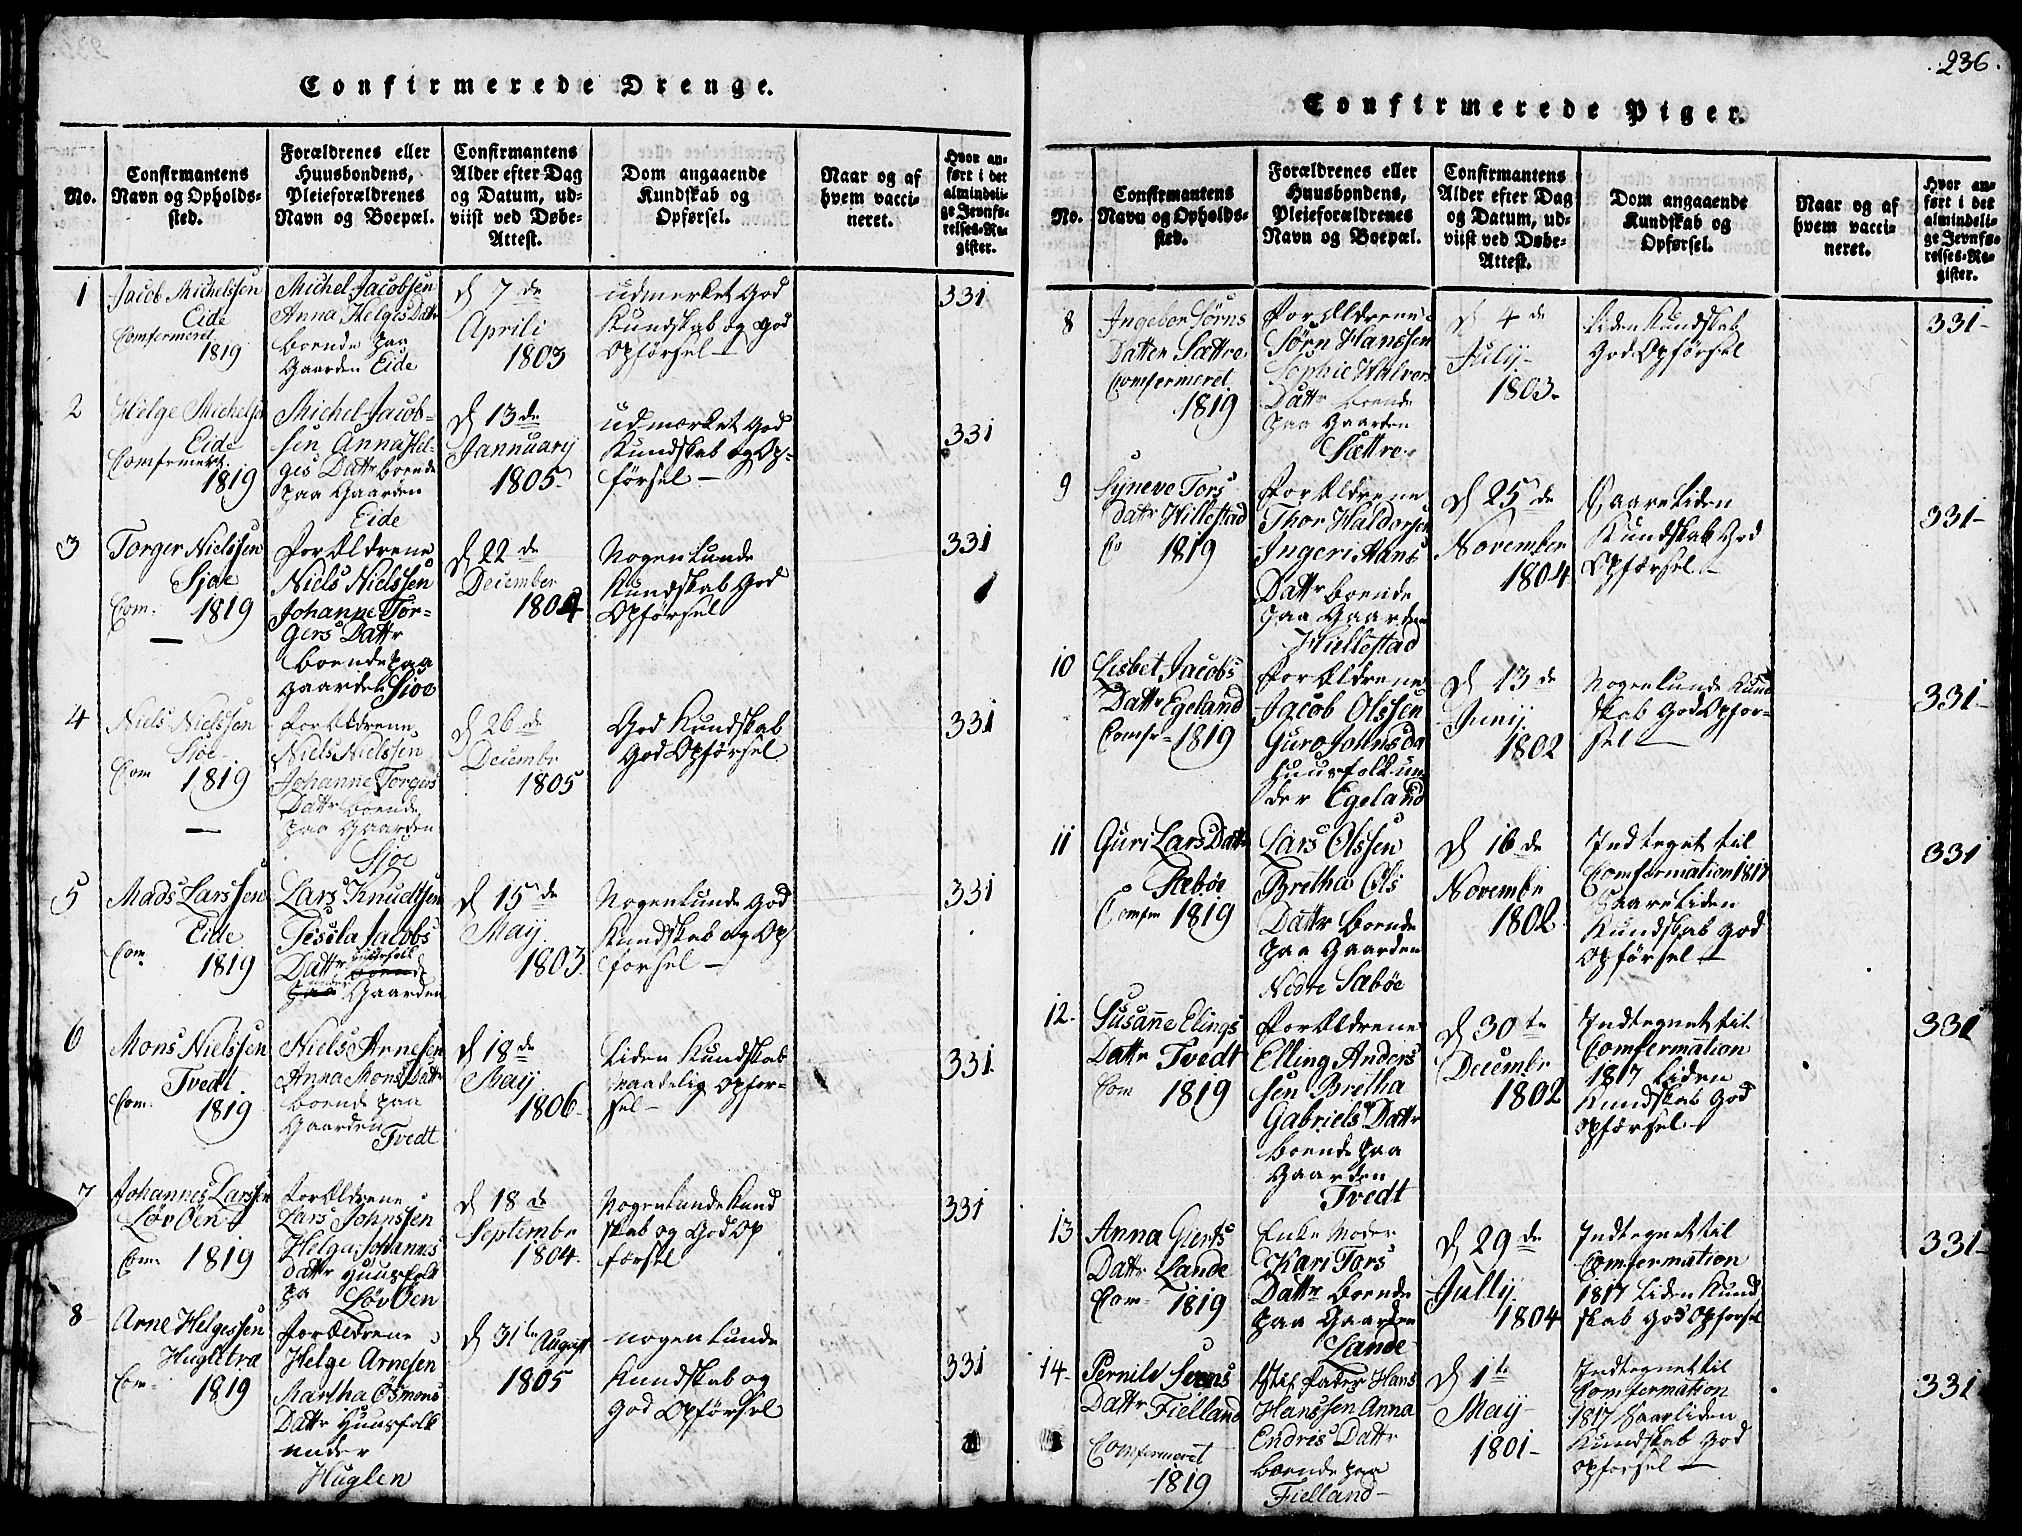 Confirmerede Drenge.
No.
Confirmantens
Navn og Opholds-
sted.
Forældrenes eller
Huusbondens,
Pleieforældrenes
Navn og Boepæl.
Confirmantens
Alder efter Dag
og Datum, ud-
viist ved Døbe-
Attest.
Dom angaaende
Kundskab og
Opførsel.
Naar og af
hvem vacci-
neret.
Hvor an-
ført i det
almindeli-
ge Jevnfø-
relses-Re-
gister.
1
Jacob Michelssen
Eide
Comfermeret
1819
Michel Jacobsen
Anna Helges Dattr
boende paa
Gaarden Eide
d 7de
Aprili
1803
udmerket God
Kundskab og God
Opførsel
331
2
Helge Michels
Eide
1819
Michel Jacob-
sen Anna Hel-
ges Dattr boende
paa Gaarden
Eide
d 13de
Jannuarij
1805
udmærket God
Kundskab og Op-
førsel
331
3
Torger Nielssen
Sjoe
Com. 1819
Forældrene
Niels Nielssen
Johanne Tor-
gers Dattr
boende paa
Gaarden Sjoe
d 22de
December
1804
Nogenlunde
Kundskab God
Opførsel
331
4
Niels Nielssen
Sjoe
Com 1819
Forældrene
Niels Nielssen
Johanne Torgers
Dattr boende
paa Gaarden
Sjoe
d 26de
Decembr
1805
God Kundskab
God Opførsel
331
5
Mads Larssen
Eide
Com. 1819
Lars Knudtsen
Jacobs
Dattr huusfolk
under Gaarden
d 15de
Maij
1803
Nogenlunde God
Kundskab og Op
forsel
331
6
Mons Nielssen
Tvedt
Com. 1819
Niels Arnesen
Anna Mons Dattr
boende paa
Gaarden
Tvedt
d 18de
Maij
1806
Liden Kundskab
maadelig Opfor-
sel
331
7
Johannes Larssen
LøvÖen
Com. 1819
Forældrene
Lars Johnssen
Helga Johannes
dattr Huusfolk
pa LøvÖen
d 18de
Septembr
1804
Nogenlunde Kund
skab og God Op
førsel
331
8
Arne Helgessen
Hugletræ
Com. 1819
Forældrene
Helge Arnesen
Martha Osmons
Dattr Huusfolk
under
Huglen
d 31te August
1805
nogenlunde
Kundskab og
God Opførsel
331
236.
Confirmerede Piger.
No.
Confirmantens
Navn og Opholds-
sted.
Forældrenes eller
Huusbondens,
Pleieforældrenes
Navn og Boepæl.
Confirmantens
Alder efter Dag
og Datum, ud-
viist ved Døbe-
Attest.
Dom angaaende
Kundskab og
Opførsel.
Naar og af
hvem vacci-
neret.
Hvor an-
ført i det
almindeli-
ge Jevnfø-
relses-Re-
gister.
8
Ingebor Sørns
Datter Sættre
Comfermeret
1819
Forældrene
Sørn Hanssen
Sophie Halvors
Dattr boende
paa Gaarden
Sættre
d 4de
Julij
1803
Liden Kundskab
God Opførsel
331
9
Synneve Tors
Dattr Hillestad
Co 1819
Forældrene
Thor Haldorsen
Ingeri Hans
Dattr boende
paa Gaarden
Hillestad
d 25de
November
1804
Saare Liden
Kundskab God
Opførsel
331
10
Lisbet Jacobs
Dattr Egeland
Comfr 1819
Forældrene
Jacob Olssen
Guro Johns da
Huusfolk un
der Egeland
d 13de
Junij
1802
Nogenlunde Kund
skab God Opfor-
sel
331
11
Guri Lars Dattr
Sæbøe
Comfm 1819
Lars Olssen
Bretha Ols
Dattr boende
paa Gaarden
Nedre Sæbøe
d 16de
Novembr
1802
Indteget til
Comfermation 1817
Saare Liden
Kundskab God
Opførsel
331
12
Susanne Elings
Dattr Tvedt
Com 1819
Forældrene
Elling Anders
sen Bretha
Gabriels Dattr
boende paa
Gaarden
Tvedt
d 30te
Decembr
1802
Indtegnet til
Comfermation
1817 Liden
Kundskab God
Opførsel
331
13
Anna Gierts
Dattr Lande
Com 1819
Enke Moder
Kari Tors
Dattr boende
paa Gaarden
Lande
d 29de
Jullij
1804
Indtegnet til
Comfermation
1817 Liden Kund
skab God Opforsel
331
14
Pernile
Dattr Fielland
Comfermeret
1819
Stif Fader Hans
Hanssen Anna
Endris Dattr
boende paa
Fielland
d 1te
Maij
1801
Indtegnet til
Comfermation
1817 Saarliden
Kundskab God
opforsel
331